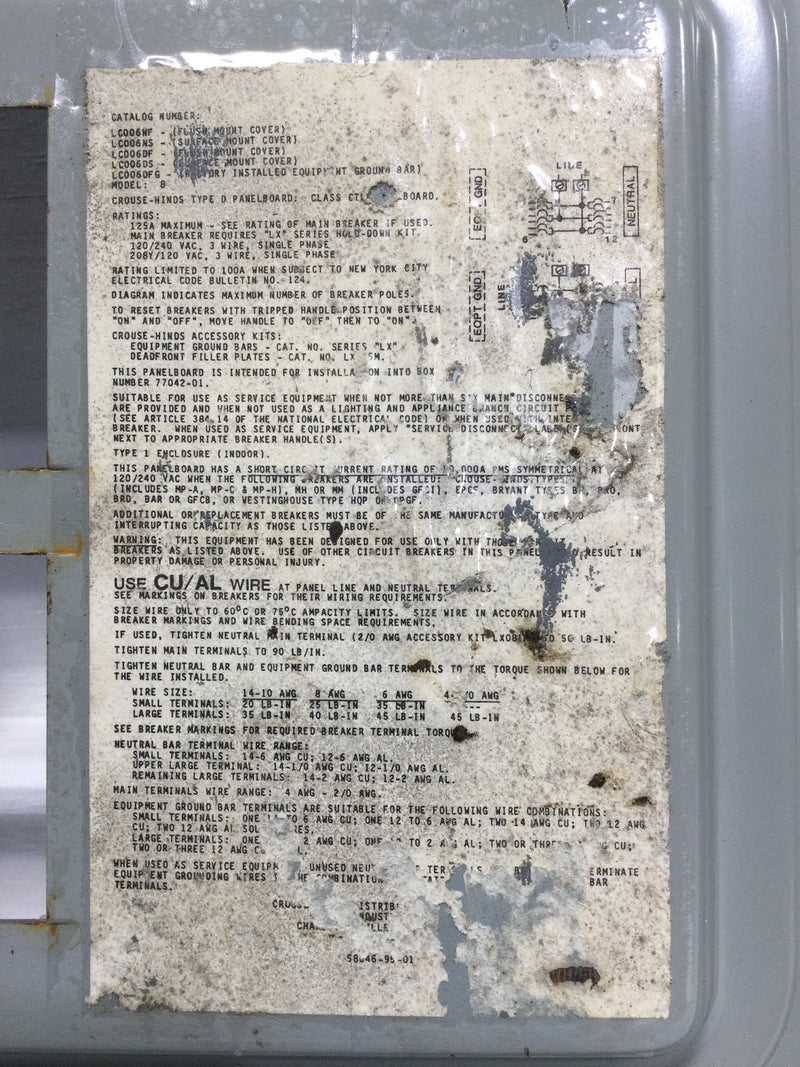 CATALOG NUMBER:
LC006NF - (FLUSH MOUNT COVER)
LC006NS - (SURFACE MOUNT COVER)
LC006DF - (FLUSH MOUNT COVER)
LC006DS - (SURFACE MOUNT COVER)
LC006DFG - INSTALLED EQUIPMENT GROUND BAR)
MODEL: 8
CROUSE-HINDS TYPE D PANELBOARD: CLASS CTL BOARD.
RATINGS:
125A MAXIMUM - SEE RATING OF MAIN BREAKER IF USED.
MAIN BREAKER REQUIRES "LX" SERIES HOLD-DOWN KIT.
120/240 VAC, 3 WIRE, SINGLE PHASE
208Y/120 VAC, 3 WIRE, SINGLE PHASE
RATING LIMITED TO 100A WHEN SUBJECT TO NEW YORK CITY
ELECTRICAL CODE BULLETIN NO. 124.
DIAGRAM INDICATES MAXIMUM NUMBER OF BREAKER POLES.
TO RESET BREAKERS WITH TRIPPED HANDLE POSITION BETWEEN
"ON" AND "OFF", MOVE HANDLE TO "OFF" THEN TO "ON".
CROUSE-HINDS ACCESSORY KITS:
EQUIPMENT GROUND BARS - CAT. NO. SERIES "LX"
DEADFRONT FILLER PLATES - CAT. NO. LX 5M.
THIS PANELBOARD IS INTENDED FOR INSTALLATION INTO BOX
NUMBER 77042-01.
LINE
EQPT GND
NEUTRAL
7
6
12
EQPT GND
LINE
SUITABLE FOR USE AS SERVICE EQUIPMENT WHEN NOT MORE THAN SIX MAIN DISCONNE
ARE PROVIDED AND WHEN NOT USED AS A LIGHTING AND APPLIANCE BRANCH CIRCUIT
(SEE ARTICLE 384.14 OF THE NATIONAL ELECTRICAL CODE) OR WHEN USED WITH INTE
BREAKER. WHEN USED AS SERVICE EQUIPMENT, APPLY "SERVICE DISCONNECT" LABEL FRONT
NEXT TO APPROPRIATE BREAKER HANDLE(S).
TYPE 1 ENCLOSURE (INDOOR).
THIS PANELBOARD HAS A SHORT CIRCUIT CURRENT RATING OF 10,000A RMS SYMMETRICAL AT
120/240 VAC WHEN THE FOLLOWING BREAKERS ARE INSTALLED: CROUSE-HINDS TYPES
(INCLUDES MP-A, MP-C & MP-H), MH OR MM (INCLUDES GFCI), BRYANT TYPES
BRD, BAR OR GFCB, OR WESTINGHOUSE TYPE HQP OR QPGF.
ADDITIONAL OR REPLACEMENT BREAKERS MUST BE OF THE SAME MANUFACTU TYPE AND
INTERRUPTING CAPACITY AS THOSE LISTED ABOVE.
WARNING: THIS EQUIPMENT HAS BEEN DESIGNED FOR USE ONLY WITH THOSE
BREAKERS AS LISTED ABOVE. USE OF OTHER CIRCUIT BREAKERS IN THIS PANEL RESULT IN
PROPERTY DAMAGE OR PERSONAL INJURY.
USE CU/AL WIRE AT PANEL LINE AND NEUTRAL TERMINALS.
SEE MARKINGS ON BREAKERS FOR THEIR WIRING REQUIREMENTS.
SIZE WIRE ONLY TO 60°C OR 75°C AMPACITY LIMITS. SIZE WIRE IN ACCORDANCE WITH
BREAKER MARKINGS AND WIRE BENDING SPACE REQUIREMENTS.
IF USED, TIGHTEN NEUTRAL MAIN TERMINAL (2/0 AWG ACCESSORY KIT TO 50 LB-IN.
TIGHTEN MAIN TERMINALS TO 90 LB/IN.
TIGHTEN NEUTRAL BAR AND EQUIPMENT GROUND BAR TERMINALS TO THE TORQUE SHOWN BELOW FOR
THE WIRE INSTALLED.
WIRE SIZE: 14-10 AWG 8 AWG 6 AWG 4- /0 AWG
SMALL TERMINALS: 20 LB-IN 25 LB-IN 35 LB-IN ---
LARGE TERMINALS: 35 LB-IN 40 LB-IN 45 LB-IN 45 LB-IN
SEE BREAKER MARKINGS FOR REQUIRED BREAKER TERMINAL TORQUE
NEUTRAL BAR TERMINAL WIRE RANGE:
SMALL TERMINALS: 14-6 AWG CU; 12-6 AWG AL.
UPPER LARGE TERMINAL: 14-1/0 AWG CU; 12-1/0 AWG AL.
REMAINING LARGE TERMINALS: 14-2 AWG CU; 12-2 AWG AL.
MAIN TERMINALS WIRE RANGE: 4 AWG - 2/0 AWG.
EQUIPMENT GROUND BAR TERMINALS ARE SUITABLE FOR THE FOLLOWING WIRE COMBINATIONS:
SMALL TERMINALS: ONE 14 TO 6 AWG CU; ONE 12 TO 6 AWG AL; TWO 14 AWG CU; TWO 12 AWG
CU; TWO 12 AWG AL SOL RES.
LARGE TERMINALS: ONE 2 AWG CU; ONE TO 2 AWG AL; TWO OR THREE CU;
TWO OR THREE 12 AWG
WHEN USED AS SERVICE EQUIPM UNUSED NEU TER ERMINATE
EQUIPMENT GROUNDING WIRES THE COMBINATION BAR
TERMINALS.
CROUS DISTRIB
DUST
CHA LLE